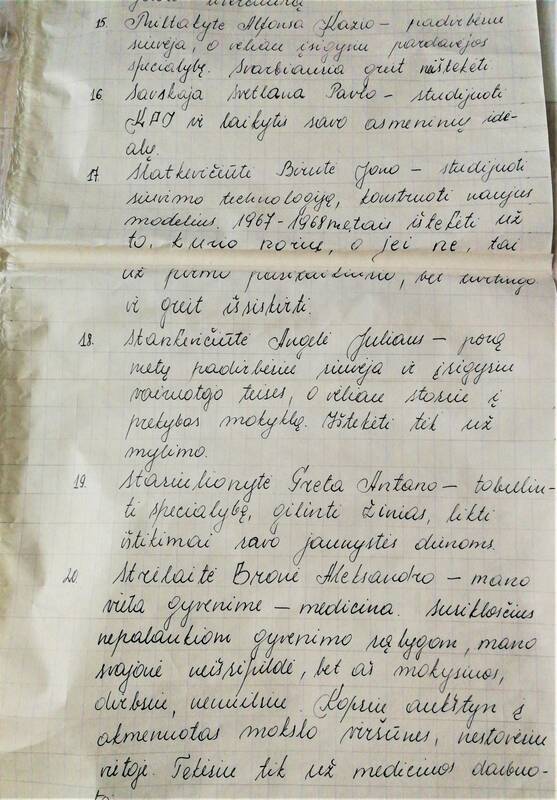 15. Miltakytė Alfonsa Kazio – padirbėsiu
siuvėja, o vėliau įsigysiu pardavėjos
specialybę. Svarbiausia greit neištekėti.
16. Savskaja Svetlana Pavlo – studijuoti
KPI ir laikytis savo asmeninių ide-
alų.
17. Statkevičiūtė Birutė Jono – studijuoti
siuvimo technologiją, konstruoti naujus
modelius. 1967–1968 metais ištekėti už
to, kurio noriu, o jei ne, tai
už pirmo pasitaikiusio, bet turtingo
ir greit išsiskirti.
18. Stankevičiūtė Angelė Juliaus – porą
metų padirbėsiu siuvėja ir įsigysiu
vairuotojo teises, o vėliau stosiu į
prekybos mokyklą. Ištekėti tik už
mylimo.
19. Stasiulionytė Greta Antano – tobulin-
ti specialybę, gilinti žinias, likti
ištikimai savo jaunystės dienoms.
20 Strėlaitė Bronė Aleksandro – mano
vieta gyvenime – medicina. Susiklosčius
nepalankiom gyvenimo sąlygom, mano
svajonė neišsipildė, bet aš mokysiuos,
dirbsiu, nenusileisiu. Kopsiu aukštyn į
akmenuotas mokslo viršūnes, nestovėsiu
vietoje. Tekėsiu tik už medicinos darbuo-